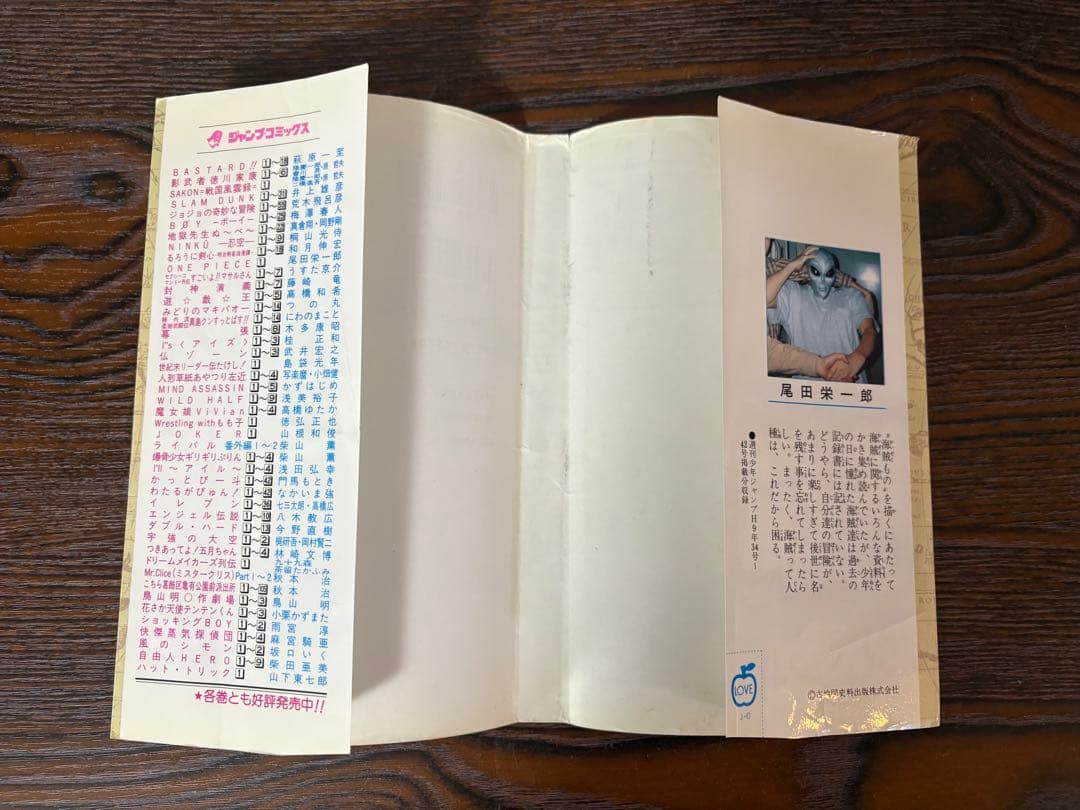 ジャンプコミックス
BASTARD!! 1〜18 萩原一至
影武者徳川家康
SAKON=戦国風雲録= 1
SLAM DUNK 井上雄彦
ジョジョの奇妙な冒険 荒木飛呂彦
BØY ―ボーイ― 梅澤春人
地獄先生ぬ〜べ〜 真倉翔・岡野剛
NINKŪ ―忍空― 1〜9 桐山光侍
るろうに剣心 和月伸宏
ONE PIECE 1 尾田栄一郎
すごいよ!!マサルさん 1〜7 うすた京介
封神演義 藤崎竜
遊☆戯☆王 高橋和希
みどりのマキバオー つの丸
真島クンすっとばす!! にわのまこと
幕張 木多康昭
I"s〈アイズ〉 1〜3 桂正和
仏ゾーン 1〜3 武井宏之
世紀末リーダー伝たけし! 1 島袋光年
人形草紙あやつり左近 1〜4 写楽麿・小畑健
MIND ASSASSIN 1〜5 かずはじめ
WILD HALF 1〜9 浅美裕子
魔女娘ViVian 1〜4 高橋ゆたか
Wrestling withもも子 1 徳弘正也
JOKER 1 山根和俊
ライバル 番外編1〜2 柴山薫
爆骨少女ギリギリぷりん 柴山薫
I'll ―アイル― 浅田弘幸
かっとび一斗 門馬もとき
わたるがぴゅん! なかいま強
イレブン 七三太朗・高橋広
エンジェル伝説 八木教広
ダブル・ハード 今野直樹
宇強の大空 梶研吾・岡村賢二
つきあってよ!五月ちゃん 1〜4 林崎文博
ドリームメイカーズ列伝 1 九十九森 茶留たかふみ
Mr.Clice(ミスタークリス) Part1〜2 秋本治
こちら葛飾区亀有公園前派出所 秋本治
鳥山明○作劇場 1〜3 鳥山明
花さか天使テンテンくん 1〜3 小栗かずまた
ショッキングBOY 1〜2 雨宮淳
快傑蒸気探偵団 1〜4 麻宮騎亜
風のシモン 1〜2 坂口いく
自由人HERO 1〜9 柴田亜美
ハット・トリック 1 山下東七郎
★各巻とも好評発売中!!
尾田栄一郎
"海賊もの"を描くにあたって
海賊に関するいろんな資料を
かき集め読んでいたが、少年
の日に憧れた海賊達は過去の
記録書には記されていない。
どうやら、自分達の冒険が
あまりに楽しすぎて後世に名
を残す事を忘れてしまったら
しい。まったく、海賊って人
種は、これだから困る。
●週刊少年ジャンプH9年34号〜
42号掲載分収録
LOVE
J-C